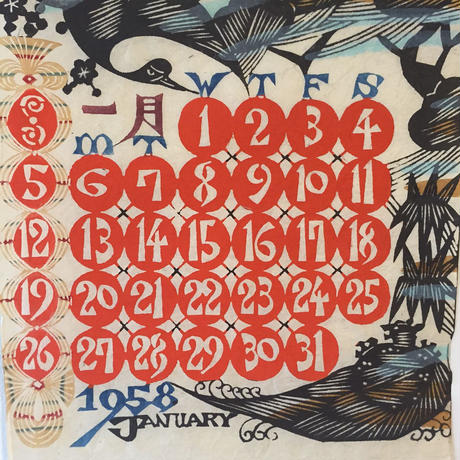 W T F S
一月 1 2 3 4
M T
5 6 7 8 9 10 11
12 13 14 15 16 17 18
19 20 21 22 23 24 25
26 27 28 29 30 31
1958
JANUARY